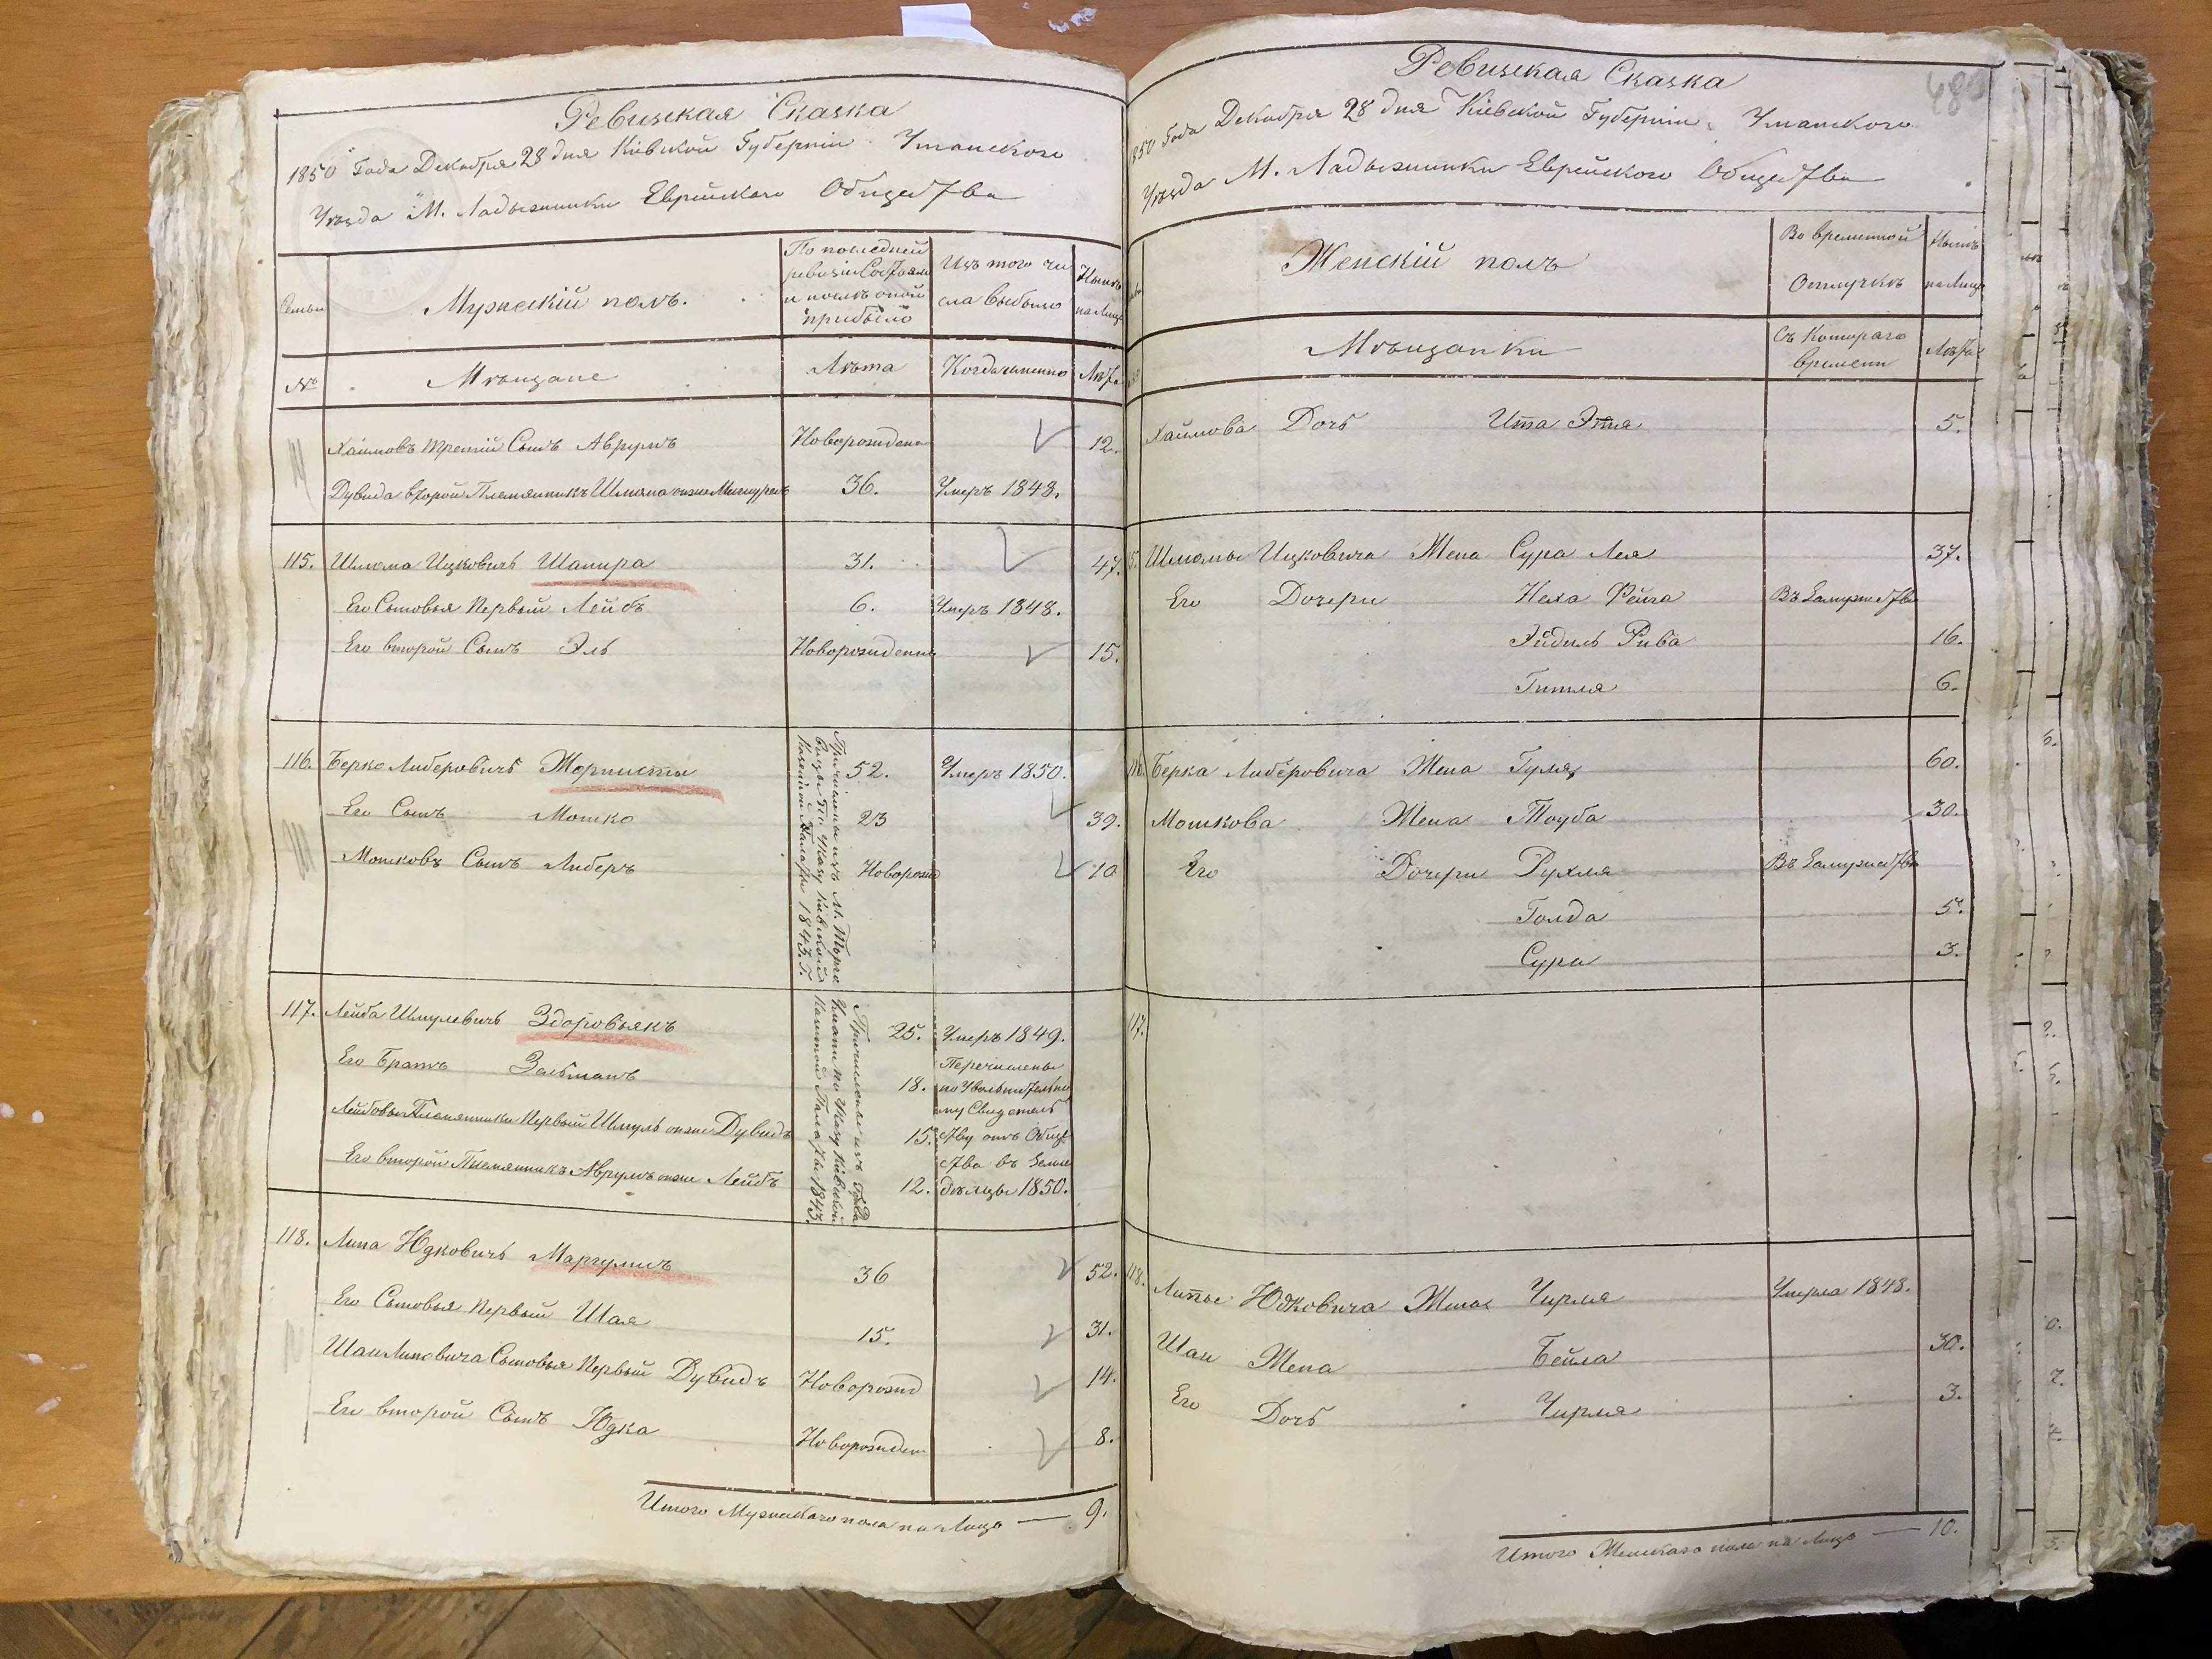 Ревизская Сказка
1850 Года Декабря 28 дня Кіевской Губерніи Уманского
Уезда М. Ладыжинки Еврейского Общества
Семьи
Мужескій полъ.
По последней
ревизіи Состояло
и после оной
прибыло
Изъ того чи
сла выбыло
Ныне
на Лицо
№
Мѣщане
Лѣта
Когда именно
Лѣта
Хаимовъ третій Сынъ Аврумъ Новорожден 12.
Дувида второй Племянникъ Шлиома онже 36. Умеръ 1848.
115. Шлиома Ицковичъ Шапира 31. 47.
Его Сыновья Первый Лейбъ 6. Умеръ 1848.
Его второй Сынъ Эль Новорожденый 15.
116. Берко Либеровичъ 52. Умеръ 1850.
Его Сынъ Мошко 23 39.
Мошковъ Сынъ Либеръ Новорожд 10
Причислены изъ М. Торго
вицы По Указу Кіевской
Казенной Палаты 1843. Г.
117. Лейба Шмулевичъ Здоровьякъ 25. Умеръ 1849.
Его Братъ Зельманъ 18.
Лейбовы Племянники Первый Шмуль онже Дувидъ 15.
Его второй Племянникъ Аврумъ онже Лейбъ 12.
Перечислены
по Увольнительно
му Свидетель
ству отъ Обще
ства въ Земле
дельцы 1850.
Причислены изъ Града
Умани по Указу Кіевской
Казенной Палаты 1843.
118. Липа Юдковичъ Маргулисъ 36 52.
Его Сыновья Первый Шая 15. 31.
Шаи Липовича Сыновья Первый Дувидъ Новорожд 14.
Его второй Сынъ Юдка Новорожден 8.
Итого Мужескаго пола на Лицо — 9.
480
Ревизская Сказка
1850 Года Декабря 28 дня Кіевской Губерніи Уманского
Уезда М. Ладыжинки Еврейского Общества
Женскій полъ
Во временной
Отлучкѣ
Ныне
на Лицо
Мѣщанки
Съ Котораго
времени
Лѣта
Хаимова Дочь Ита Этля 5.
115. Шлиомы Ицковича Жена Сура Лея 37.
Его Дочери Неха Фейга Въ Замужестве
Эйдиль Рива 16.
Гитля 6.
116. Берка Либеровича Жена Гуля 60.
Мошкова Жена Тоуба 30.
Его Дочери Рухля Въ Замужестве
Голда 5.
Сура 3.
117.
118. Липы Юдковича Жена Чирля Умерла 1848.
Шаи Жена Бейла 30.
Его Дочь Чирля 3.
Итого Женскаго пола на Лицо — 10.